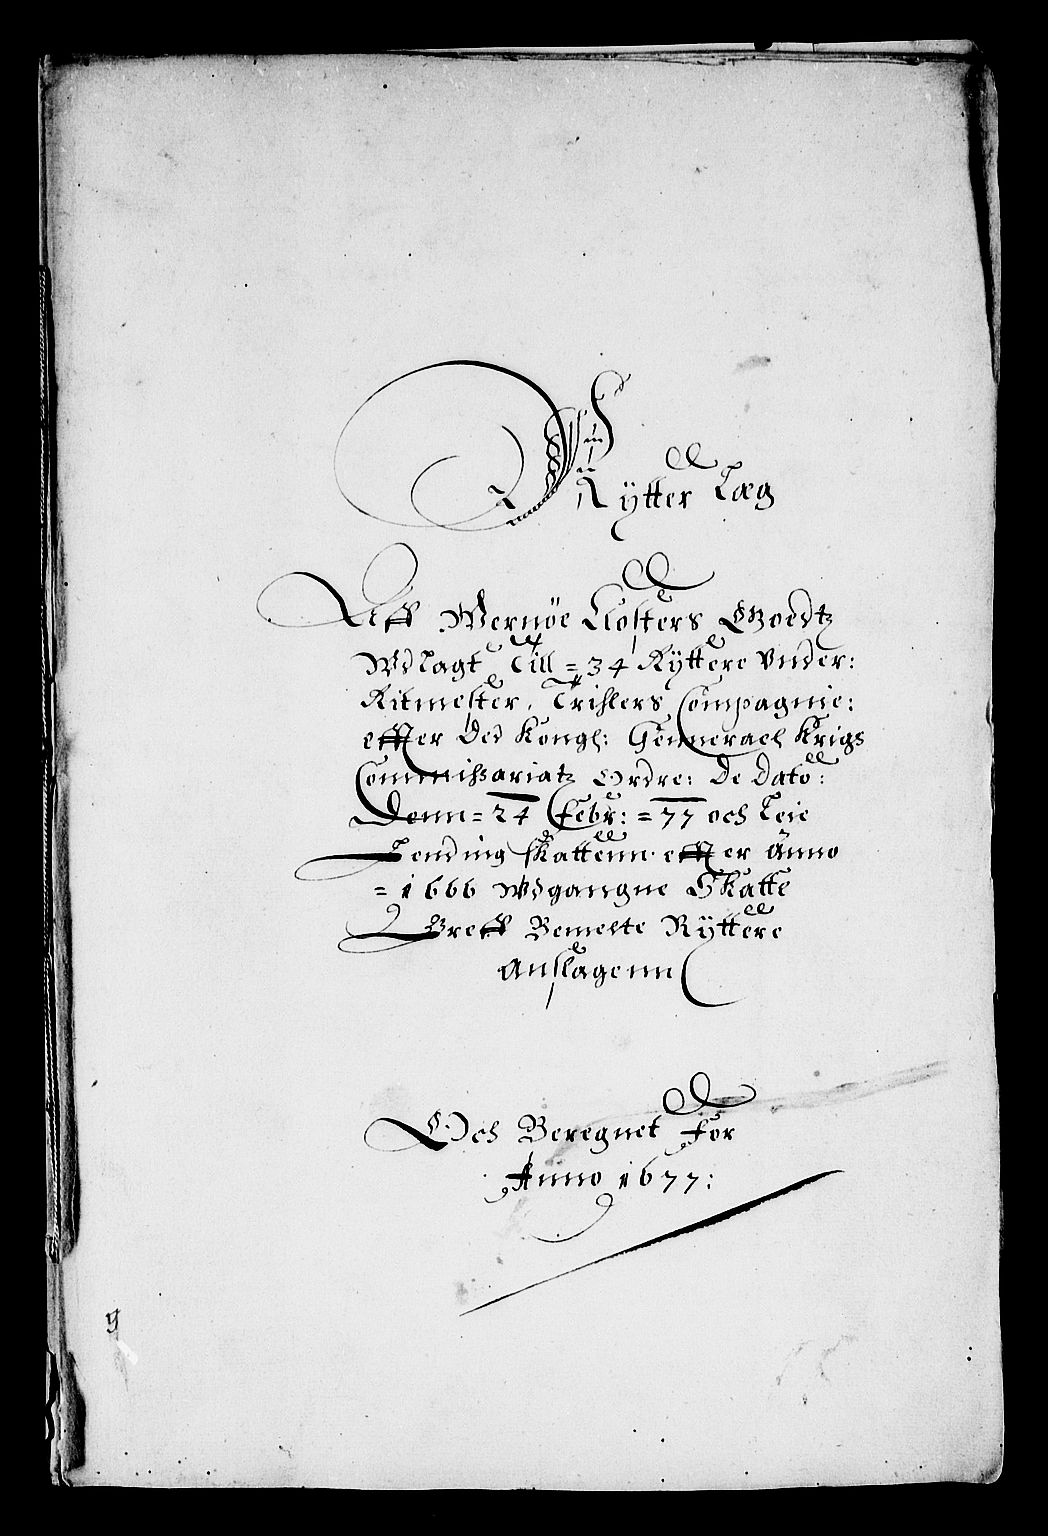 Rytter Læg
Aff Wernöe Closters Goedtz
Wdlagt Till = 34 Ryttere Vnder:
Ritmester, Trislers Compagnie:
effter Ded Kongl: Gennerael Krigs
Commissariatz Ordre: De Dato:
Denn = 24 Febr: = 77 och Leie
Lending Skattenn effter Anno
= 1666 Wdgangne Skatte
Breff Bemelte Ryttere
Anslagenn
Och Beregnet for
Anno 1677:
9